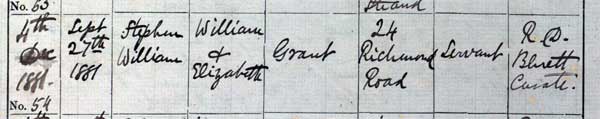 No. 53 Strand
4th Sept Stephen William 24 R. D.
Dec 27th William & Grant Richmond Servant Blrett
1881. 1881 Elizabeth Road Curate.
No. 54